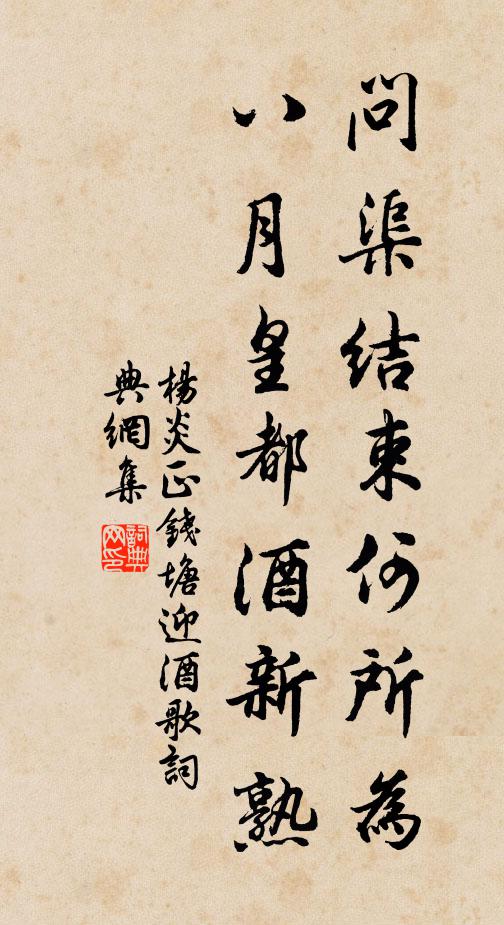 問渠結束何所為
八月皇都酒新熟
楊炎正錢塘迎酒歌詞
典網集
詞典
网印